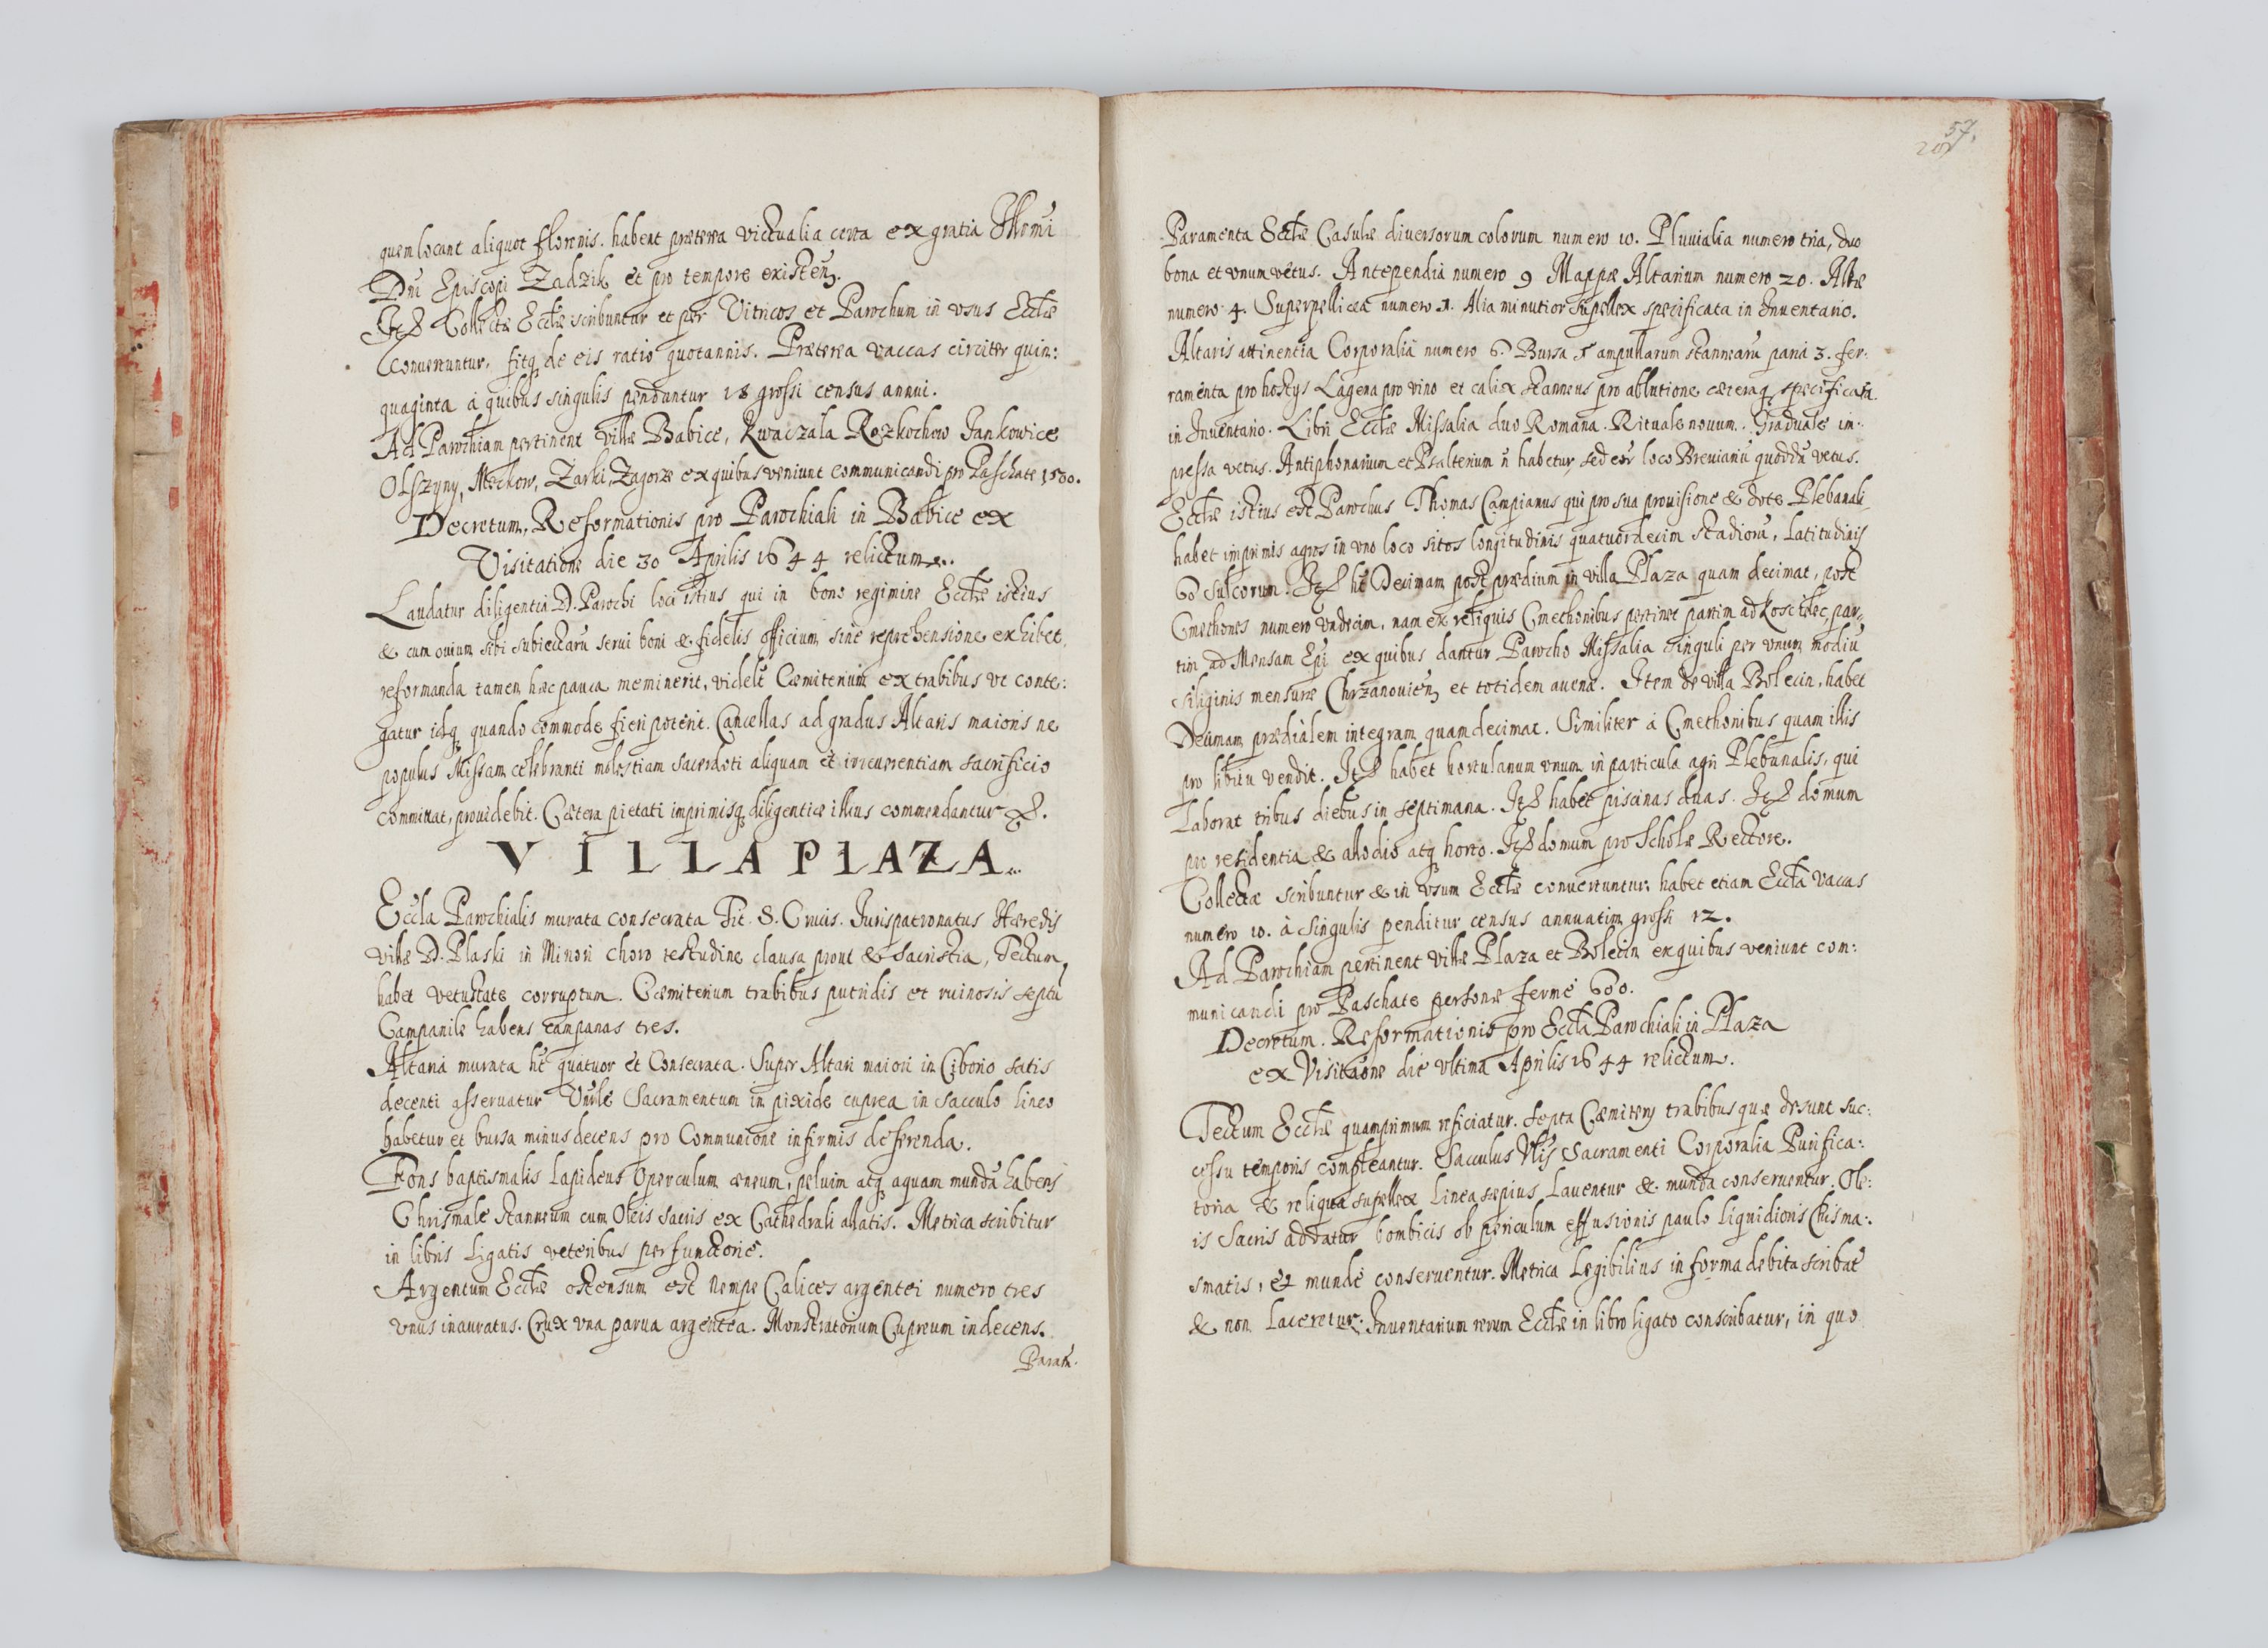 quem locant aliquot florenis. habent præterea victualia certa ex gratia Illmi
Dni Episcopi Zadzik et pro tempore existen.
Collectæ Ecclæ scribuntur et per Vitricos et Parochum in vsus Ecclæ
Conuertuntur, fitq de eis ratio quotannis. Præterea vaccas circiter quin:
quaginta à quibus singulis penduntur 18 grossi census annui.
Ad Parochiam pertinent villæ Babice, Kwaczala Rozkochow Jankowice
Olszyny, Mechow, Zarki, Zagorze ex quibus veniunt communicandi pro Paschate 1500.
Decretum Reformationis pro Parochiali in Babice ex
Visitatione die 30 Aprilis 1644 relictum.
Laudatur diligentia D. Parochi loci istius qui in bono regimine Ecclæ istius
& cum ouium sibi subiectarū serui boni & fidelis officium sine reprehensione exhibet.
reformanda tamen hæc pauca meminerit, videlt Cæmiterium ex trabibus vt conte:
gatur idq quando commode fieri poterit. Cancellas ad gradus Altaris maioris ne
populus Missam celebranti molestiam sacerdoti aliquam et irreuerentiam sacrificio
committat, prouidebit. Cætera pietati imprimisq diligentiæ illius commendantur
VILLA PLAZA.
Eccla Parochialis murata consecrata Tit. S. Crucis. Jurispatronatus Hæredis
villæ D. Plaski in Minori choro testudine clausa prout & Sacristia, Tectum
habet vetustate corruptum. Cæmiterium trabibus putridis et ruinosis septū
Campanile habens campanas tres.
Altaria murata ht quatuor et Consecrata. Super Altari maiori in Ciborio satis
decenti asseruatur Vnrle Sacramentum in pixide cuprea in sacculo lineo
habetur et bursa minus decens pro Communione infirmis deferenda.
Fons baptismalis lapideus operculum æneum, peluim atq aquam mundā habens
Chrismale stanneum cum Oleis sacris ex Cathedrali allatis. Metrica scribitur
in libris ligatis veteribus perfunctorie.
Argentum Ecclæ ostensum est nempe Calices argentei numero tres
vnus inauratus. Crux vna parua argentea. Monstratorium Cupreum indecens.
Param.
57.
Paramenta Ecclæ Casulæ diuersorum colorum numero 10. Pluuialia numero tria, duo
bona et vnum vetus. Antependia numero 9 Mappæ Altarium numero 20. Albæ
numero 4. Superpelliceæ numero 1. Alia minutior supellex specificata in Inuentario.
Altaris attinentia Corporalia numero 6. Bursa 5 ampullarum stannearū paria 3. fer:
ramenta pro hostys Lagena pro vino et calix stanneus pro ablutione cæteraq specificata
in Inuentario. Libri Ecclæ Missalia duo Romana. Rituale nouum. Graduale im:
pressa vetus. Antiphonarium et Psalterium ñ habetur sed eor loco Breuiariū quoddū vetus.
Ecclæ istius est Parochus Thomas Campianus qui pro sua prouisione & dote Plebanali
habet imprimis agros in vno loco sitos longitudinis quatuordecim stadiorū, latitudinis
60 sulcorum. ht Decimam post prædium in villa Plaza quam decimat, post
Cmethones numero vndecim, nam ex reliquis Cmethonibus pertinet partim ad Koscielec, par:
tim ad Mensam Epi ex quibus dantur Parocho Missalia singuli per vnum modiū
siliginis mensuræ Chrzanouien et totidem auenæ. Item de villa Bolecin, habet
Decimam prædialem integram quam decimat. Similiter à Cmethonibus quam illis
pro libitu vendit. habet hortulanum vnum in particula agri Plebanalis, qui
laborat tribus diebus in septimana. habet piscinas duas. domum
pro residentia & allodio atq horto. domum pro Scholæ Rectore.
Collectæ scribuntur & in vsum Ecclæ conuertuntur, habet etiam Eccla vaccas
numero 10. à singulis penditur census annuatim grossi 12.
Ad Parochiam pertinent villæ Plaza et Bolecin ex quibus veniunt com:
municandi pro Paschate personæ ferme 600.
Decretum Reformationis pro Eccla Parochiali in Plaza
ex Visitaone die vltima Aprilis 1644 relictum.
Tectum Ecclæ quamprimum reficiatur. Septa Cæmitery trabibus quæ desunt suc:
cessu temporis compleantur. Sacculus Vlis Sacramenti Corporalia Purifica:
toria & reliqua supellex linea sæpius lauentur & munda conseruentur. Ole:
is Sacris addatur bombicis ob periculum effusionis paulo liquidioris Chisma:
smatis, et munde conseruentur. Metrica legibilius in forma debita scribat
& non laceretur. Inuentarium rerum Ecclæ in libro ligato conscribatur, in quo